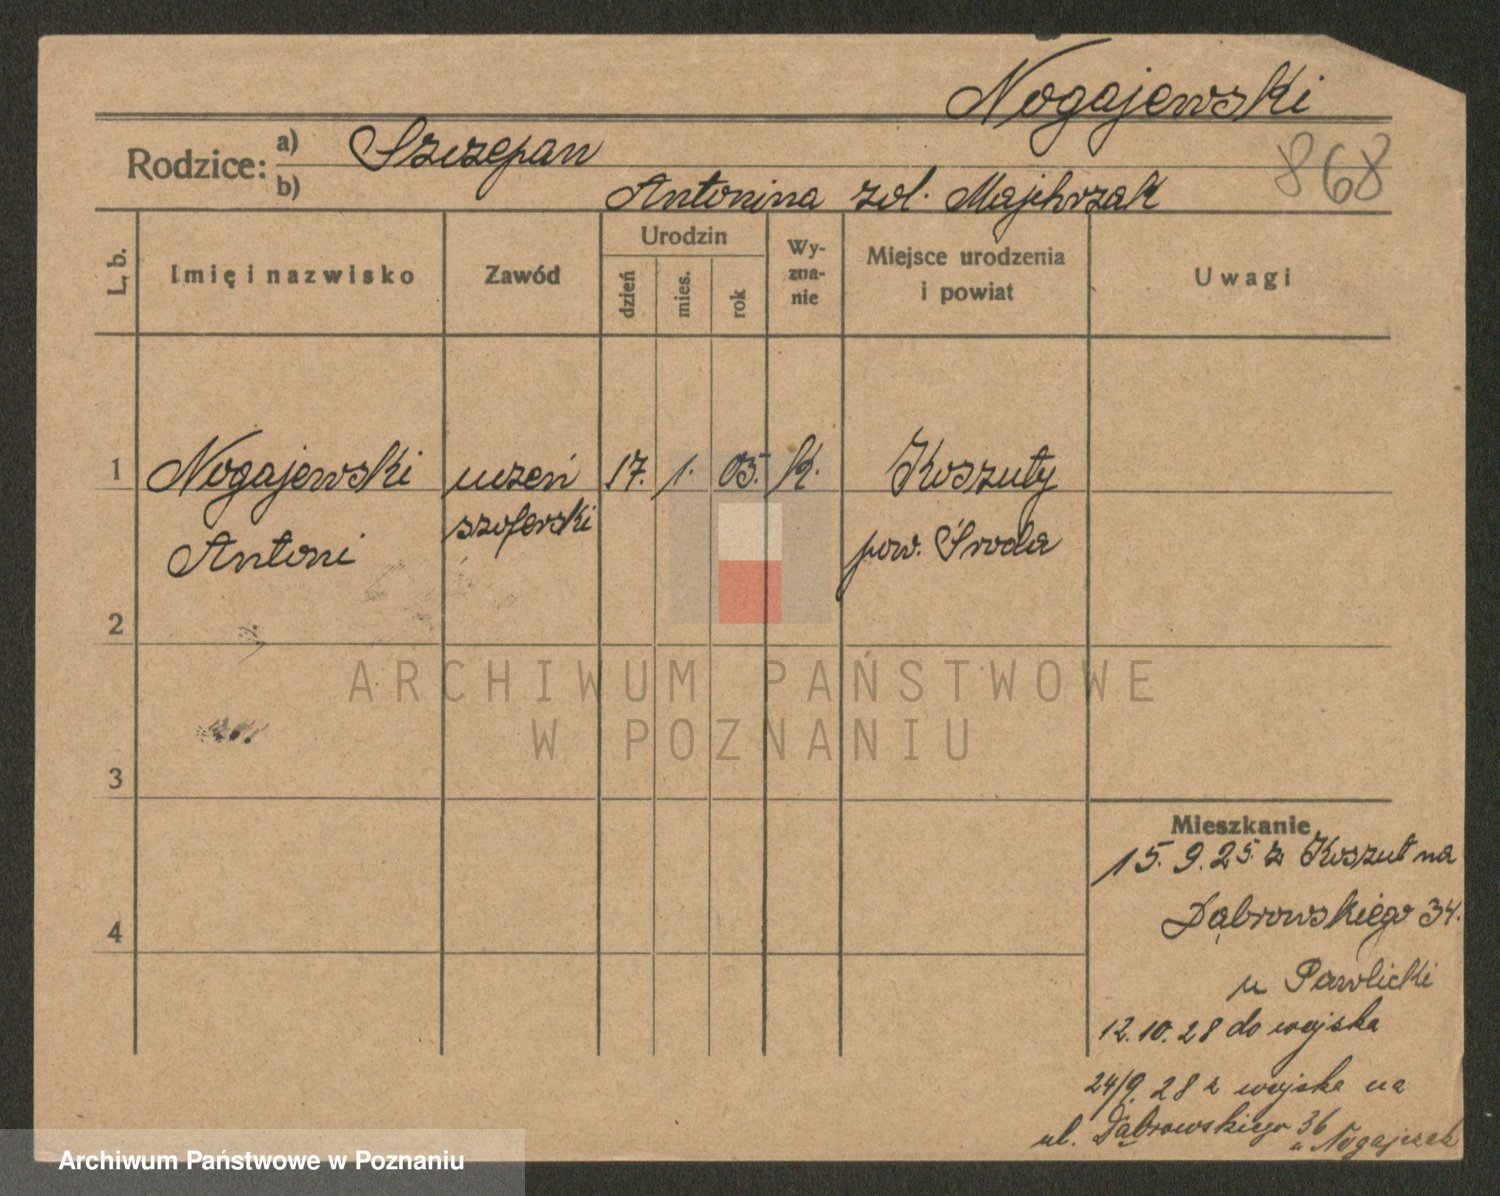 Nogajewski
868
Rodzice: a) Szczepan
b) Antonina zol. Majchrzak
L. b.
Imię i nazwisko
Zawód
Urodzin
dzień
mies.
rok
Wy-
zna-
nie
Miejsce urodzenia
i powiat
Uwagi
1 Nogajewski uczeń 17. 1. 05. k. Koszuty
Antoni szoferski pow. Środa
2
3
4
Mieszkanie
15. 9. 25. z Koszut na
Dąbrowskiego 34.
u Pawlicki
12. 10. 28 do wojska
24/9. 28 z wojska na
ul. Dąbrowskiego 36
u Nogajczak
ARCHIWUM PAŃSTWOWE
W POZNANIU
Archiwum Państwowe w Poznaniu